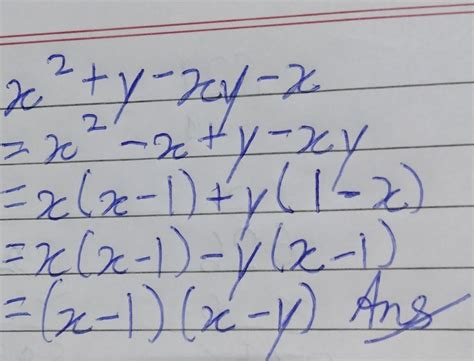 x² + y - xy - x
= x² - x + y - xy
= x(x-1) + y(1-x)
= x(x-1) - y(x-1)
= (x-1)(x-y) Ans